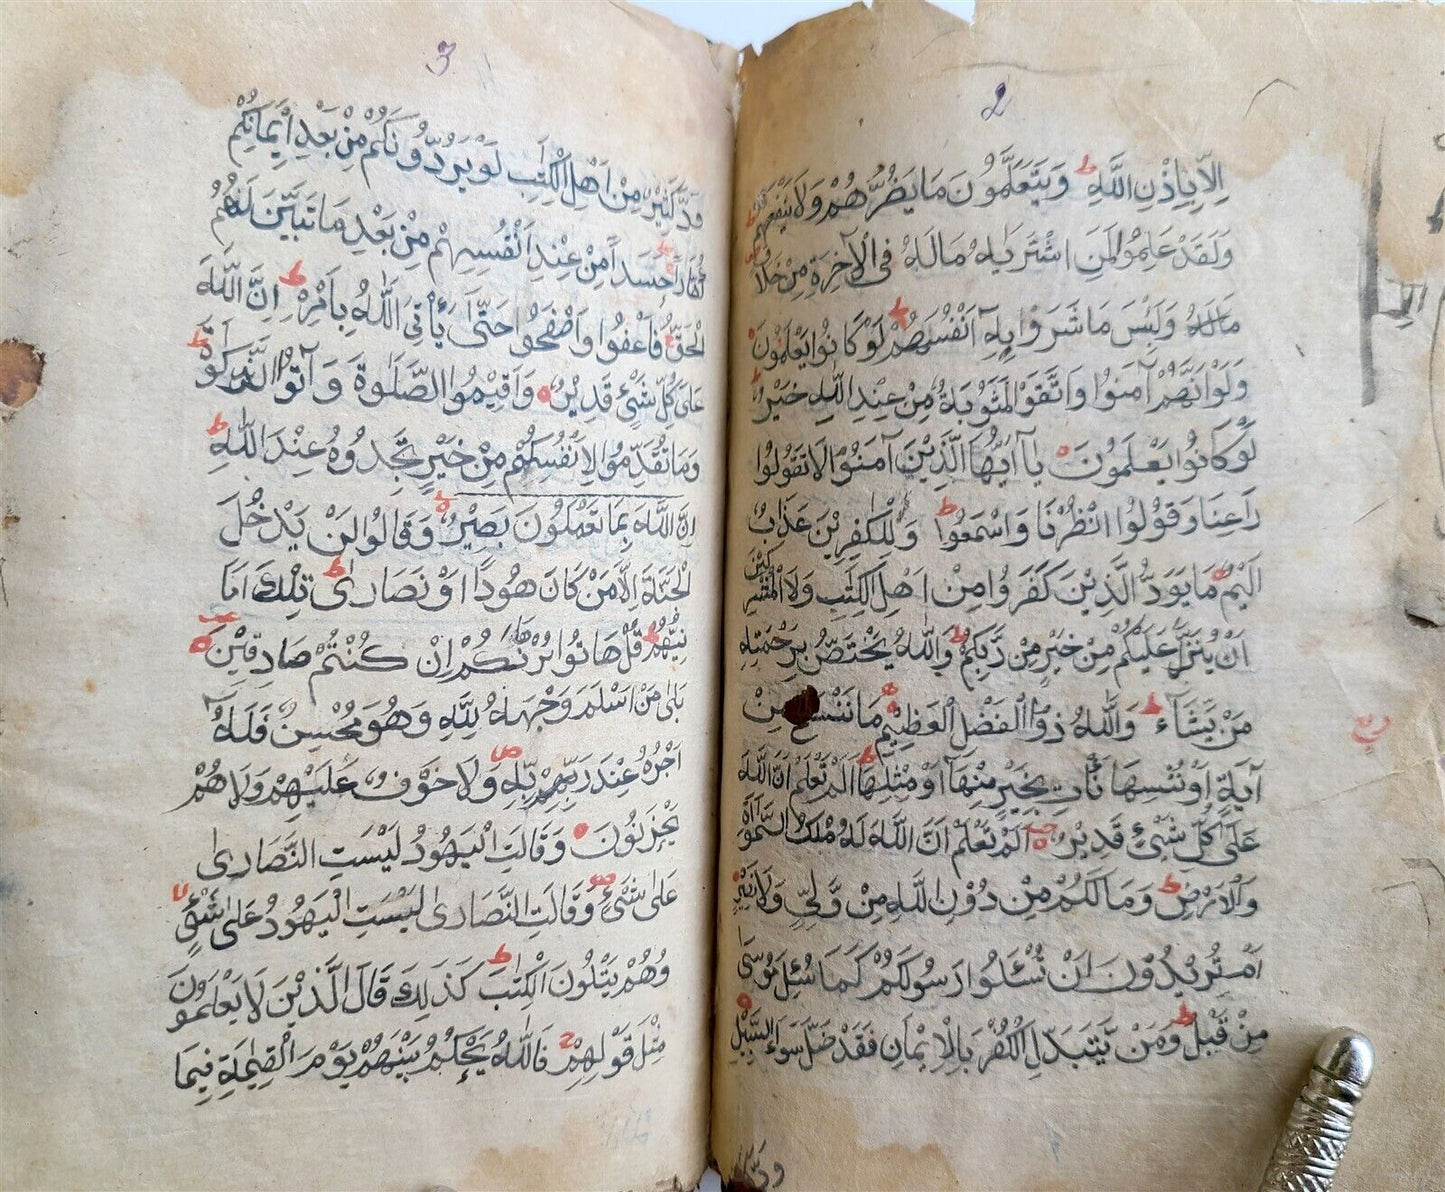 2
اِلَّا بِاِذْنِ اللَّهِ ط وَيَتَعَلَّمُونَ مَا يَضُرُّهُمْ وَلَا يَنْفَعُهُمْ ط
وَلَقَدْ عَلِمُوا لَمَنِ اشْتَرَيٰهُ مَالَهُ فِى الْآخِرَةِ مِنْ خَلَاقٍ
وَلَبِئْسَ مَا شَرَوْا بِهٖٓ اَنْفُسَهُمْ ط لَوْ كَانُوا يَعْلَمُونَ
وَلَوْ اَنَّهُمْ آمَنُوا وَاتَّقَوْا لَمَثُوبَةٌ مِنْ عِنْدِ اللّٰهِ خَيْرٌ ط
لَوْ كَانُوا يَعْلَمُونَ يَا اَيُّهَا الَّذِيْنَ آمَنُوْا لَا تَقُولُوا
رَاعِنَا وَقُولُوا انْظُرْنَا وَاسْمَعُوا ط وَلِلْكٰفِرِيْنَ عَذَابٌ
اَلِيْمٌ مَا يَوَدُّ الَّذِيْنَ كَفَرُوا مِنْ اَهْلِ الْكِتٰبِ وَلَا الْمُشْرِكِيْنَ
اَنْ يُنَزَّلَ عَلَيْكُمْ مِنْ خَيْرٍ مِنْ رَّبِّكُمْ ط وَاللّٰهُ يَخْتَصُّ بِرَحْمَتِهٖ
مَنْ يَّشَآءُ ط وَاللّٰهُ ذُو الْفَضْلِ الْعَظِيْمِ مَا نَنْسَخْ مِنْ
آيَةٍ اَوْ نُنْسِهَا نَأْتِ بِخَيْرٍ مِنْهَآ اَوْ مِثْلِهَا ط اَلَمْ تَعْلَمْ اَنَّ اللّٰهَ
عَلٰى كُلِّ شَيْئٍ قَدِيْرٌ اَلَمْ تَعْلَمْ اَنَّ اللّٰهَ لَهُ مُلْكُ السَّمٰوَاتِ
وَالْاَرْضِ ط وَمَا لَكُمْ مِنْ دُوْنِ اللّٰهِ مِنْ وَّلِيٍّ وَلَا نَصِيْرٍ
اَمْ تُرِيْدُوْنَ اَنْ تَسْئَلُوا رَسُولَكُمْ كَمَا سُئِلَ مُوْسٰى
مِنْ قَبْلُ ط وَمَنْ يَّتَبَدَّلِ الْكُفْرَ بِالْاِيْمَانِ فَقَدْ ضَلَّ سَوَآءَ السَّبِيْلِ
3
وَدَّ كَثِيْرٌ مِنْ اَهْلِ الْكِتٰبِ لَوْ يَرُدُّوْنَكُمْ مِنْ بَعْدِ اِيْمَانِكُمْ
كُفَّارًا حَسَدًا مِنْ عِنْدِ اَنْفُسِهِمْ مِنْ بَعْدِ مَا تَبَيَّنَ لَهُمُ
الْحَقُّ فَاعْفُوا وَاصْفَحُوا حَتّٰى يَأْتِىَ اللّٰهُ بِاَمْرِهٖ ط اِنَّ اللّٰهَ
عَلٰى كُلِّ شَيْئٍ قَدِيْرٌ وَاَقِيْمُوا الصَّلٰوةَ وَآتُوا الزَّكٰوةَ ط
وَمَا تُقَدِّمُوا لِاَنْفُسِكُمْ مِنْ خَيْرٍ تَجِدُوهُ عِنْدَ اللّٰهِ ط
اِنَّ اللّٰهَ بِمَا تَعْمَلُونَ بَصِيْرٌ وَقَالُوا لَنْ يَدْخُلَ
الْجَنَّةَ اِلَّا مَنْ كَانَ هُودًا اَوْ نَصَارٰى ط تِلْكَ اَمَا
نِيُّهُمْ ط قُلْ هَاتُوا بُرْهَانَكُمْ اِنْ كُنْتُمْ صَادِقِيْنَ
بَلٰى مَنْ اَسْلَمَ وَجْهَهُ لِلّٰهِ وَهُوَ مُحْسِنٌ فَلَهُٓ
اَجْرُهُ عِنْدَ رَبِّهٖ ص وَلَا خَوْفٌ عَلَيْهِمْ وَلَا هُمْ
يَحْزَنُوْنَ وَقَالَتِ الْيَهُودُ لَيْسَتِ النَّصَارٰى
عَلٰى شَيْئٍ ص وَقَالَتِ النَّصَارٰى لَيْسَتِ الْيَهُودُ عَلٰى شَيْئٍ
وَهُمْ يَتْلُوْنَ الْكِتٰبَ ط كَذٰلِكَ قَالَ الَّذِيْنَ لَا يَعْلَمُوْنَ
مِثْلَ قَوْلِهِمْ ج فَاللّٰهُ يَحْكُمُ بَيْنَهُمْ يَوْمَ الْقِيٰمَةِ فِيْمَا